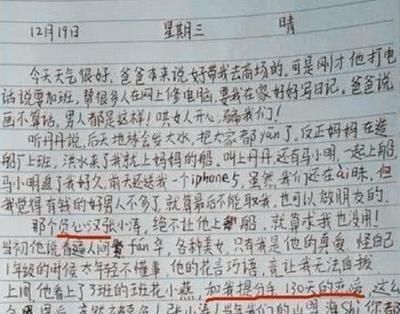 12月19日 星期三 晴
今天天气很好，爸爸本来说好带我去商场的，可是刚才他打电
话说要加班，帮很多人在网上修电脑，要我在家好好写日记。爸爸说
画不算话，男人都是这样！哄女人开心，骗我们！
听丹丹说，后天地球会发大水，把大家都yan了，反正妈妈在造
船厂上班，洪水来了我就上妈妈的船。叫上丹丹还有马小明一起上船，
马小明追了我好久，前天还送我一个iphone5，虽然我们还在ai昧，但
我觉得有钱的好男人不多了，就算最后不能取我，也可以做朋友的。
那个负心汉张小涛，绝不让他上船，就算求我也没用！
当初他说看遍人间fan辛，各种美女，只有我是他的真爱，怪自己
1年级的时候太年轻不懂事，他的花言巧语，竟让我无法自拔，
上周，他看上了3班的班花小燕，和我提分手，130天的恋爱，这么